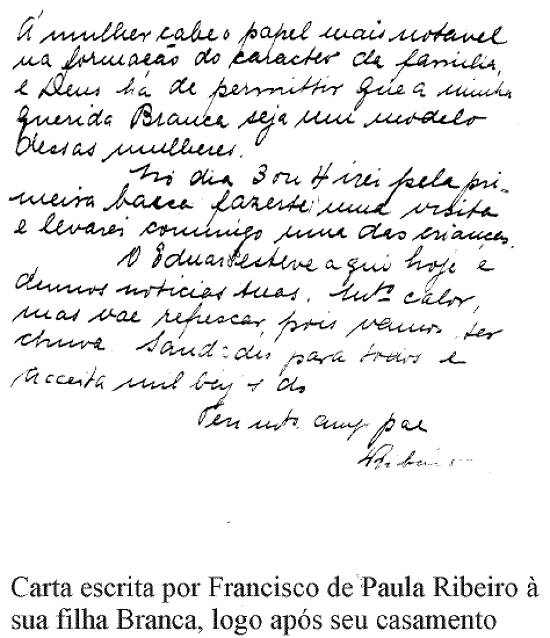 Á mulher cabe o papel mais notavel
na formação do caracter da familia,
e Deus há de permittir que a minha
querida Branca seja um modelo
dessas mulheres.
No dia 3 ou 4 irei pela pri-
meira barca fazerte uma visita
e levarei commigo uma das crianças.
O Eduardo esteve aqui hoje e
deunos noticias tuas. Mto calor,
mas vae refrescar, pois vamos ter
chuva. Saudades para todos e
acceita mil beijos do
Teu mto. amo pae
Ribeiro
Carta escrita por Francisco de Paula Ribeiro à
sua filha Branca, logo após seu casamento